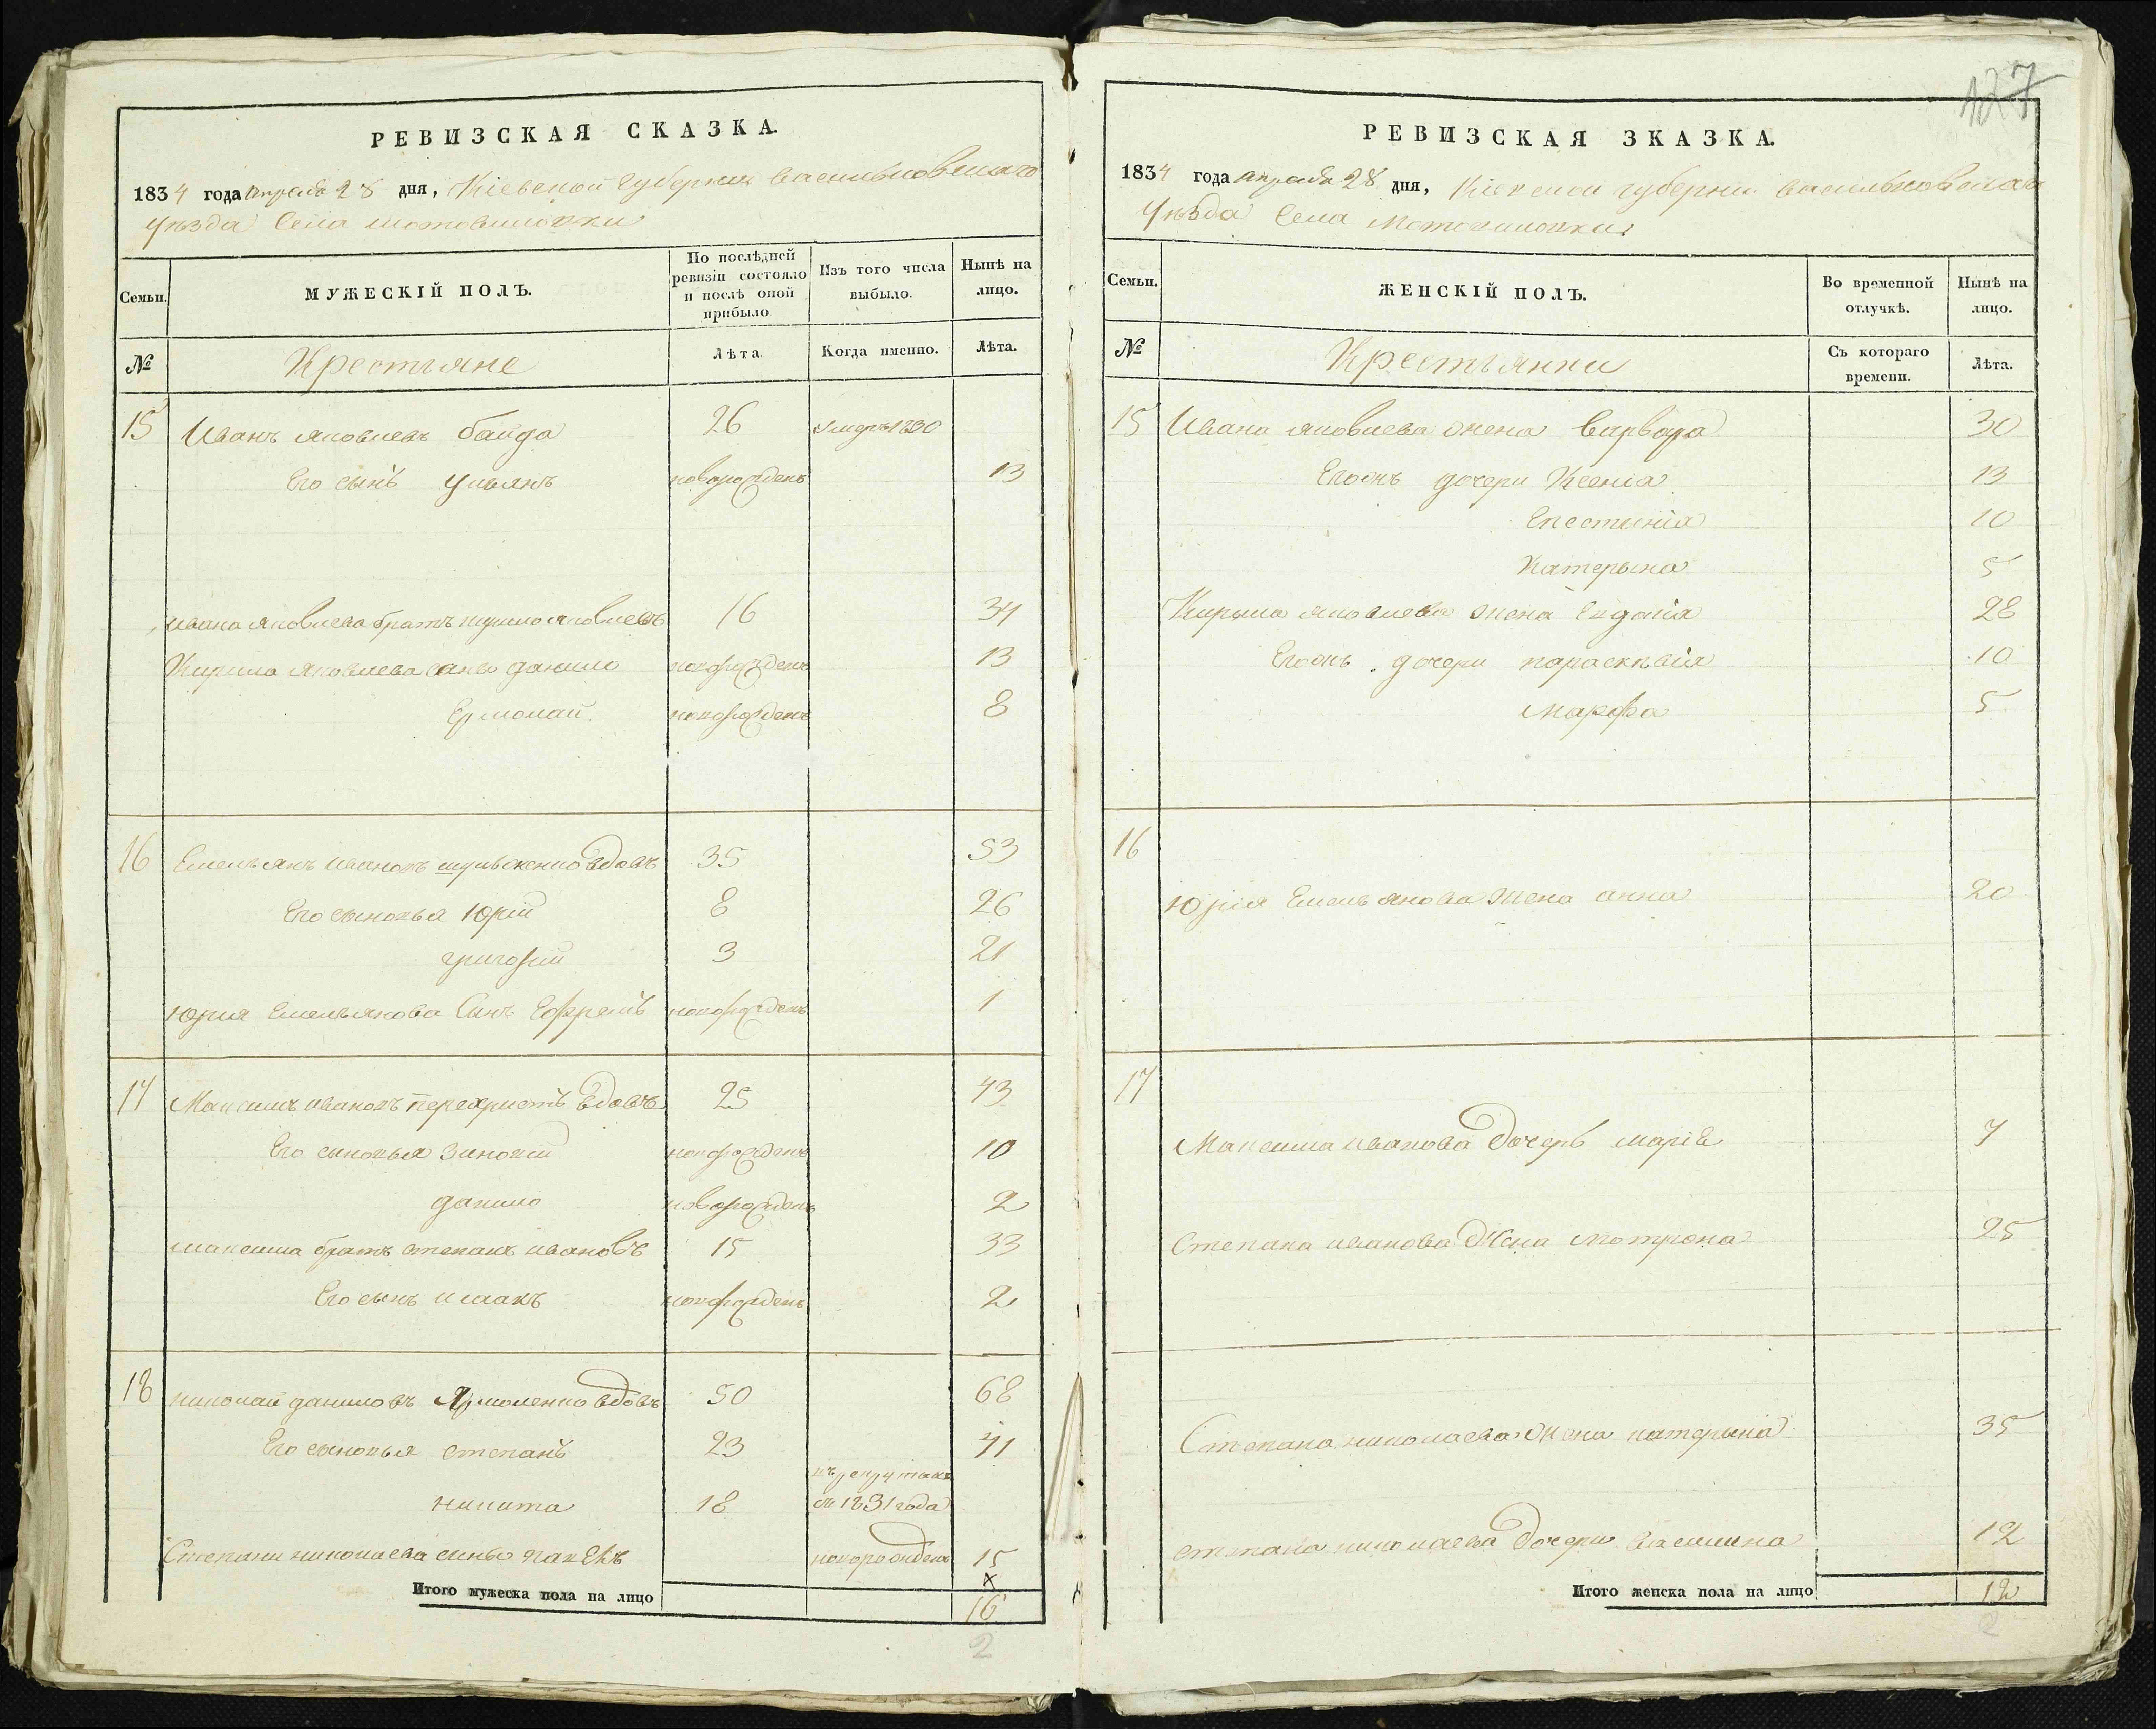 РЕВИЗСКАЯ СКАЗКА.
1834 года апреля 28 дня, Кіевской губерніи Васильковскаго
уѣзда Села Мотовиловки
Семьи.
МУЖЕСКІЙ ПОЛЪ.
По послѣдней ревизіи состояло и послѣ оной прибыло.
Изъ того числа выбыло.
Нынѣ на лицо.
№
Крестьяне
Лѣта.
Когда именно.
Лѣта.
15 Иванъ Яковлевъ байда 26 Умеръ 1830
Его сынъ Ульянъ новорожденъ 13
Ивана Яковлева братъ Кирило Яковлевъ 16 34
Кирила Яковлева сыны данило новорожденъ 13
Ермолай новорожденъ 8
16 Емельянъ Ивановъ шульженко вдовъ 35 53
Его сыновья Юрій 8 26
григорій 3 21
Юрия Емельянова Сынъ Ефремъ новорожденъ 1
17 Максимъ Ивановъ перехристъ вдовъ 25 43
Его сыновья Зиновий новорожденъ 10
данило новорожденъ 2
максима братъ степанъ ивановъ 15 33
Его сынъ исаакъ новорожденъ 2
18 николай даниловъ Ярмоленко вдовъ 50 68
Его сыновья степанъ 23 41
никита 18 въ рекрутахъ съ 1831 года
Степана николаева сынъ новорожденъ 15
х
Итого мужеска пола на лицо 16
2
127
РЕВИЗСКАЯ ЗКАЗКА.
1834 года апреля 28 дня, Кіевской губерніи Васильковскаго
уѣзда Села Мотовиловки
Семьи.
ЖЕНСКІЙ ПОЛЪ.
Во временной отлучкѣ.
Нынѣ на лицо.
№
Крестьянки
Съ котораго времени.
Лѣта.
15 Ивана Яковлева жена Варвара 30
Егожъ дочери Ксенія 13
Епестинія 10
Катерына 5
Кирыла Яковлева жена Евдокія 28
Егожъ дочери параскѣвія 10
марфа 5
16
Юрія Емельянова жена анна 20
17
Максима иванова дочерь маріѣ 7
Степана иванова жена мотрона 25
Степана николаева жена катерына 35
степана николаева дочери василина 12
Итого женска пола на лицо 12
2